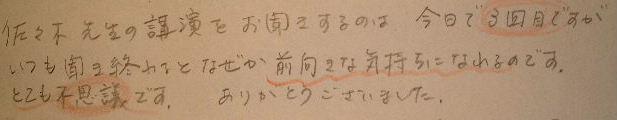 佐々木 先生の講演をお聞きするのは 今日で3回目ですが
いつも聞き終わるとなぜか前向きな気持ちになれるのです。
とても不思議です。 ありがとうございました。